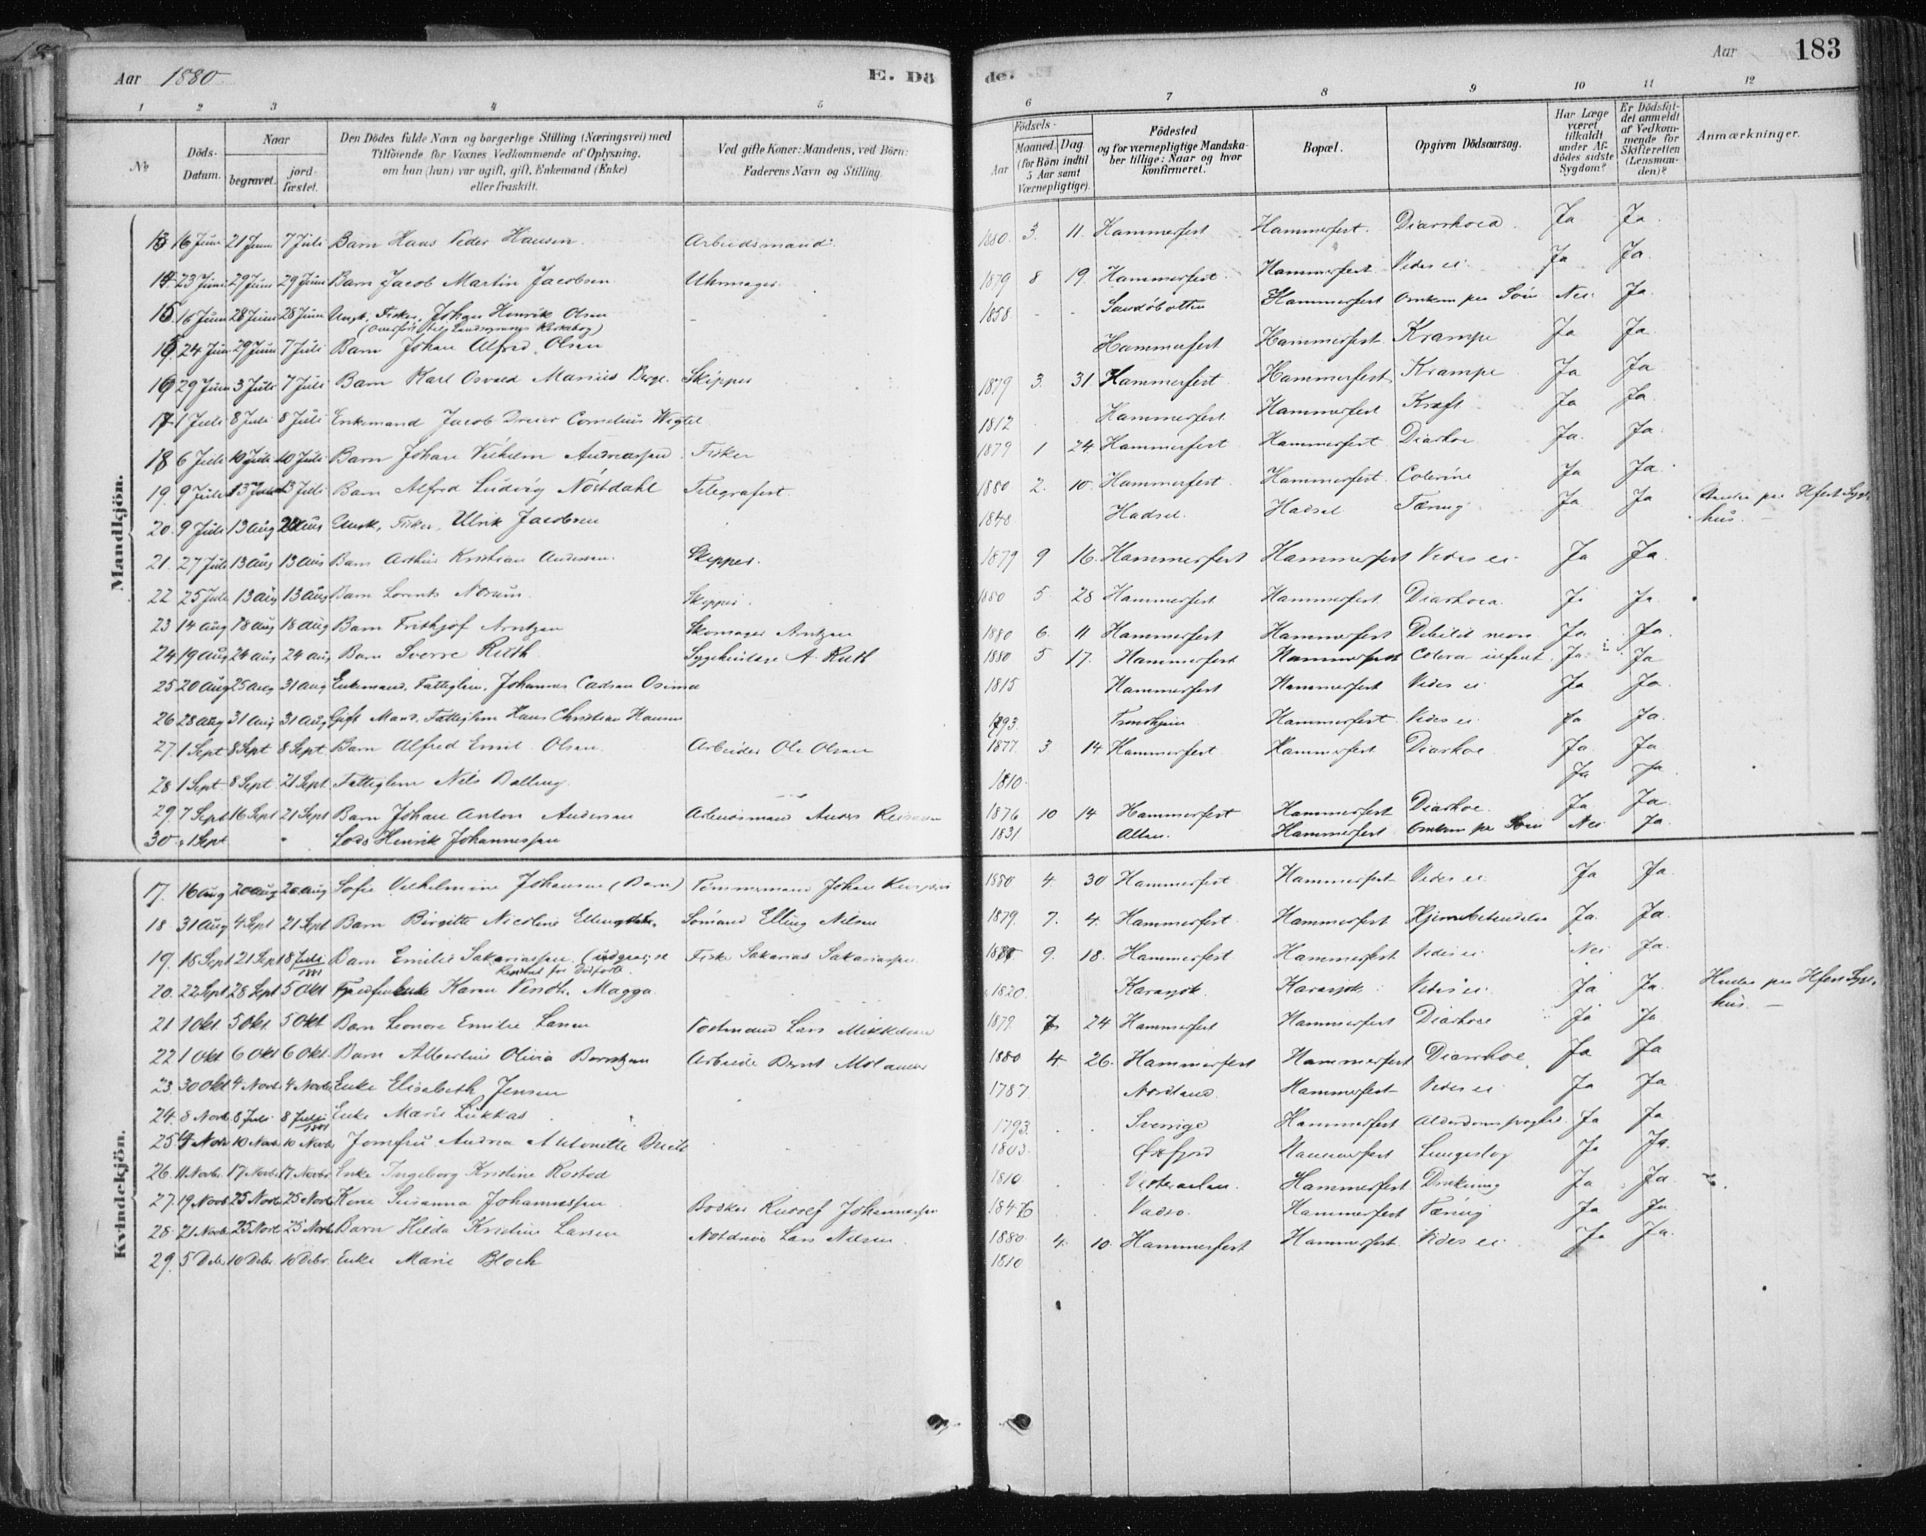 Aar 1880 E. Dö de. E. Aar 183
1 2 3 4 5 6 7 8 9 10 11 12
No Döds-Datum. Naar begravet. jordfæstet. Den Dödes fulde Navn og borgerlige Stilling (Næringsvei) med Tilföiende for Voxnes Vedkommende af Oplysning, om han (hun) var ugift, gift, Enkemand (Enke) eller fraskilt. Ved gifte Koner: Mandens, ved Börn: Faderens Navn og Stilling. Födsels- Aar Maaned. Dag (for Börn indtil 5 Aar samt Værnepligtige). Födested og for værnepligtige Mandskaber tillige: Naar og hvor konfirmeret. Bopæl. Opgiven Dödsaarsag. Har Læge været tilkaldt under Afdödes sidste Sygdom? Er Dödsfaldet anmeldt af Vedkommende for Skifteretten (Lensmanden)? Anmærkninger.
Mandkjön.
13 16 Juni 21 Juni 7 Juli Barn Hans Peder Hansen Arbeidsmand 1880 3. 11. Hammerfest Hammerfest. Diarrhoea Ja Ja
14 23 Juni 29 Juni 29 Juni Barn Jacob Martin Jacobsen Uhrmager 1879 8 19. Hammerfest Hammerfest Vides ei Ja Ja
15 16 Juni 28 Juni 28 Juni Ungk. Fisker, Johan Henrik Olsen 1858 Hammerfest Omkom paa Söen Nei Ja
24 Juni 29 Juni 7 Juli Barn Johan Alfred Olsen Hammerfest Hammerfest Krampe Ja Ja
16 29 Juni 3 Juli 7 Juli Barn Karl Osvald Marius Berge Skipper 1879 3. 31 Hammerfest Hammerfest Krampe Ja Ja
17 1 Juli 8 Juli 8 Juli Enkemand Jacob Dreier Cornelius Wigtel 1812 Hammerfest Hammerfest Kræft Ja Ja
18 6 Juli 10 Juli 10 Juli Barn Johan Vilhelm Andreassen Fisker 1879 1 24 Hammerfest Hammerfest Diarhoe Ja Ja
19. 9 Juli 13 Juli 13 Juli Barn Alfred Ludvig Nöstdahl Telegrafist 1880 2. 10. Hammerfest Hammerfest Colerine Ja Ja
20. 9 Juli 13 Aug Aug Ungk. Fisker, Ulrik Jacobsen 1840 Hadsel Hadsel Tæring Ja Ja paa Hfest Sygehus.
21. 27 Juli 13 Aug 13 Aug Barn Arthur Kristian Andersen Skipper. 1879 9 16. Hammerfest Hammerfest Vides ei Ja Ja
22 25 Juli 13 Aug 13 Aug Barn Lorents Norum Skipper. 1880 5 28 Hammerfest Hammerfest. Diarhoea Ja Ja
23 14 Aug 18 Aug 18 Aug Barn Frithjof Arntzen Skomager Arntzen 1880 6. 11 Hammerfest Hammerfest Ja Ja
24 19 Aug 24 Aug 24 Aug Barn Sverre Ruth A. Ruth 1880 5 17. Hammerfest Hammerfest Colera infant. Ja Ja
25 20 Aug 25 Aug 31 Aug Enkemand, Fattiglem, Johannes 1815 Hammerfest Hammerfest Vides ei Ja Ja
26 28 Aug 31 Aug 31 Aug Gift Mand, Fattiglem Hans Christian Hansen 1793. Trondhjem Hammerfest. Vides ei Ja Ja
27. 1 Sept 8 Sept 8 Sept. Barn Alfred Emil Olsen Arbeider Ole Olsen 1877. 3 14 Hammerfest Hammerfest Diarhoe Ja Ja
28 1 Sept 8 Sept 21 Sept Fattiglem Nils Balling 1810. Ja Ja
29. 7 Sept 16 Sept 21 Sept Barn Johan Anton Andersen Arbeidsmand Anders 1876 10 14 Hammerfest Hammerfest Diarhoe Ja Ja
30 1 Sept Lods Henrik Johannessen 1831 Alten Hammerfest Omkom paa Söen Nei Ja
Kvindekjön.
17. 16 Aug 20 Aug 20 Aug Sofie Vilhelmine Johansen (Barn) Tömmermand Johan 1880 4. 30 Hammerfest Hammerfest Vides ei Ja Ja
18 31 Aug 4 Sept 21 Sept Barn Birgitte Nicoline Sömand Elling Nilsen 1879. 7. 4. Hammerfest Hammerfest Ja Ja
19. 18 Sept 21 Sept 8 Juli 1881 Barn Emilie Sakariassen Fisker Sakarias Sakariassen 9. 18. Hammerfest. Hammerfest Vides ei Nei Ja
20. 22 Sept 28 Sept 5 Okt Karen Magga 1820. Karasjok Karasjok Vides ei Ja Ja paa Hfest Sygehus.
21 1 Okt. 5 Okt 5 Okt. Barn Leonore Emilie Larsen Postmand Lars Mikkelsen 1879. 7 24 Hammerfest Hammerfest Diarhoe Ja Ja
22 1 Okt 6 Okt 6 Okt. Barn Albertine Olivia Berntzen Arbeider Bernt 1880 4. 26. Hammerfest Hammerfest Diarrhoe Ja Ja
23. 30 Okt 4 Novb 4 Novb Enke Elisabeth Jensen 1787. Nordland Hammerfest Vides ei Ja Ja
24. 8 Novb 8 Juli 8 Juli 1881 Enke Marie Lukkas 1793. Sverrige Hammerfest Ja Ja
25 4 Novb 10 Novb 10 Novb Jomfru Andrea Antonette 1803. Öxfjord Hammerfest Ja Ja
26. 11 Novb. 17 Novb 17 Novbr Enke Ingeborg Kristine Rosted 1810. Vesteraalen Hammerfest Ja Ja
27. 19 Novb 25 Novb 25 Novb Kone Susanna Johannessen Bödker Rudolf Johannessen 1846 Vadsö Hammerfest Tæring Ja Ja
28. 21 Novb 25 Novb 25 Novb Barn Hilda Kristine Larsen Lars Nilsen 1880. 4. 10. Hammerfest Hammerfest. Vides ei Ja Ja
29. 5 Debr 10 Debr. 10 Debr. Enke Marie Bloch 1810